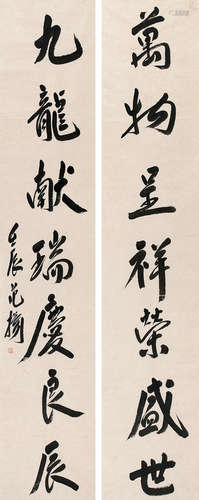 萬物呈祥榮盛世
九龍献瑞慶良辰
壬辰範擒